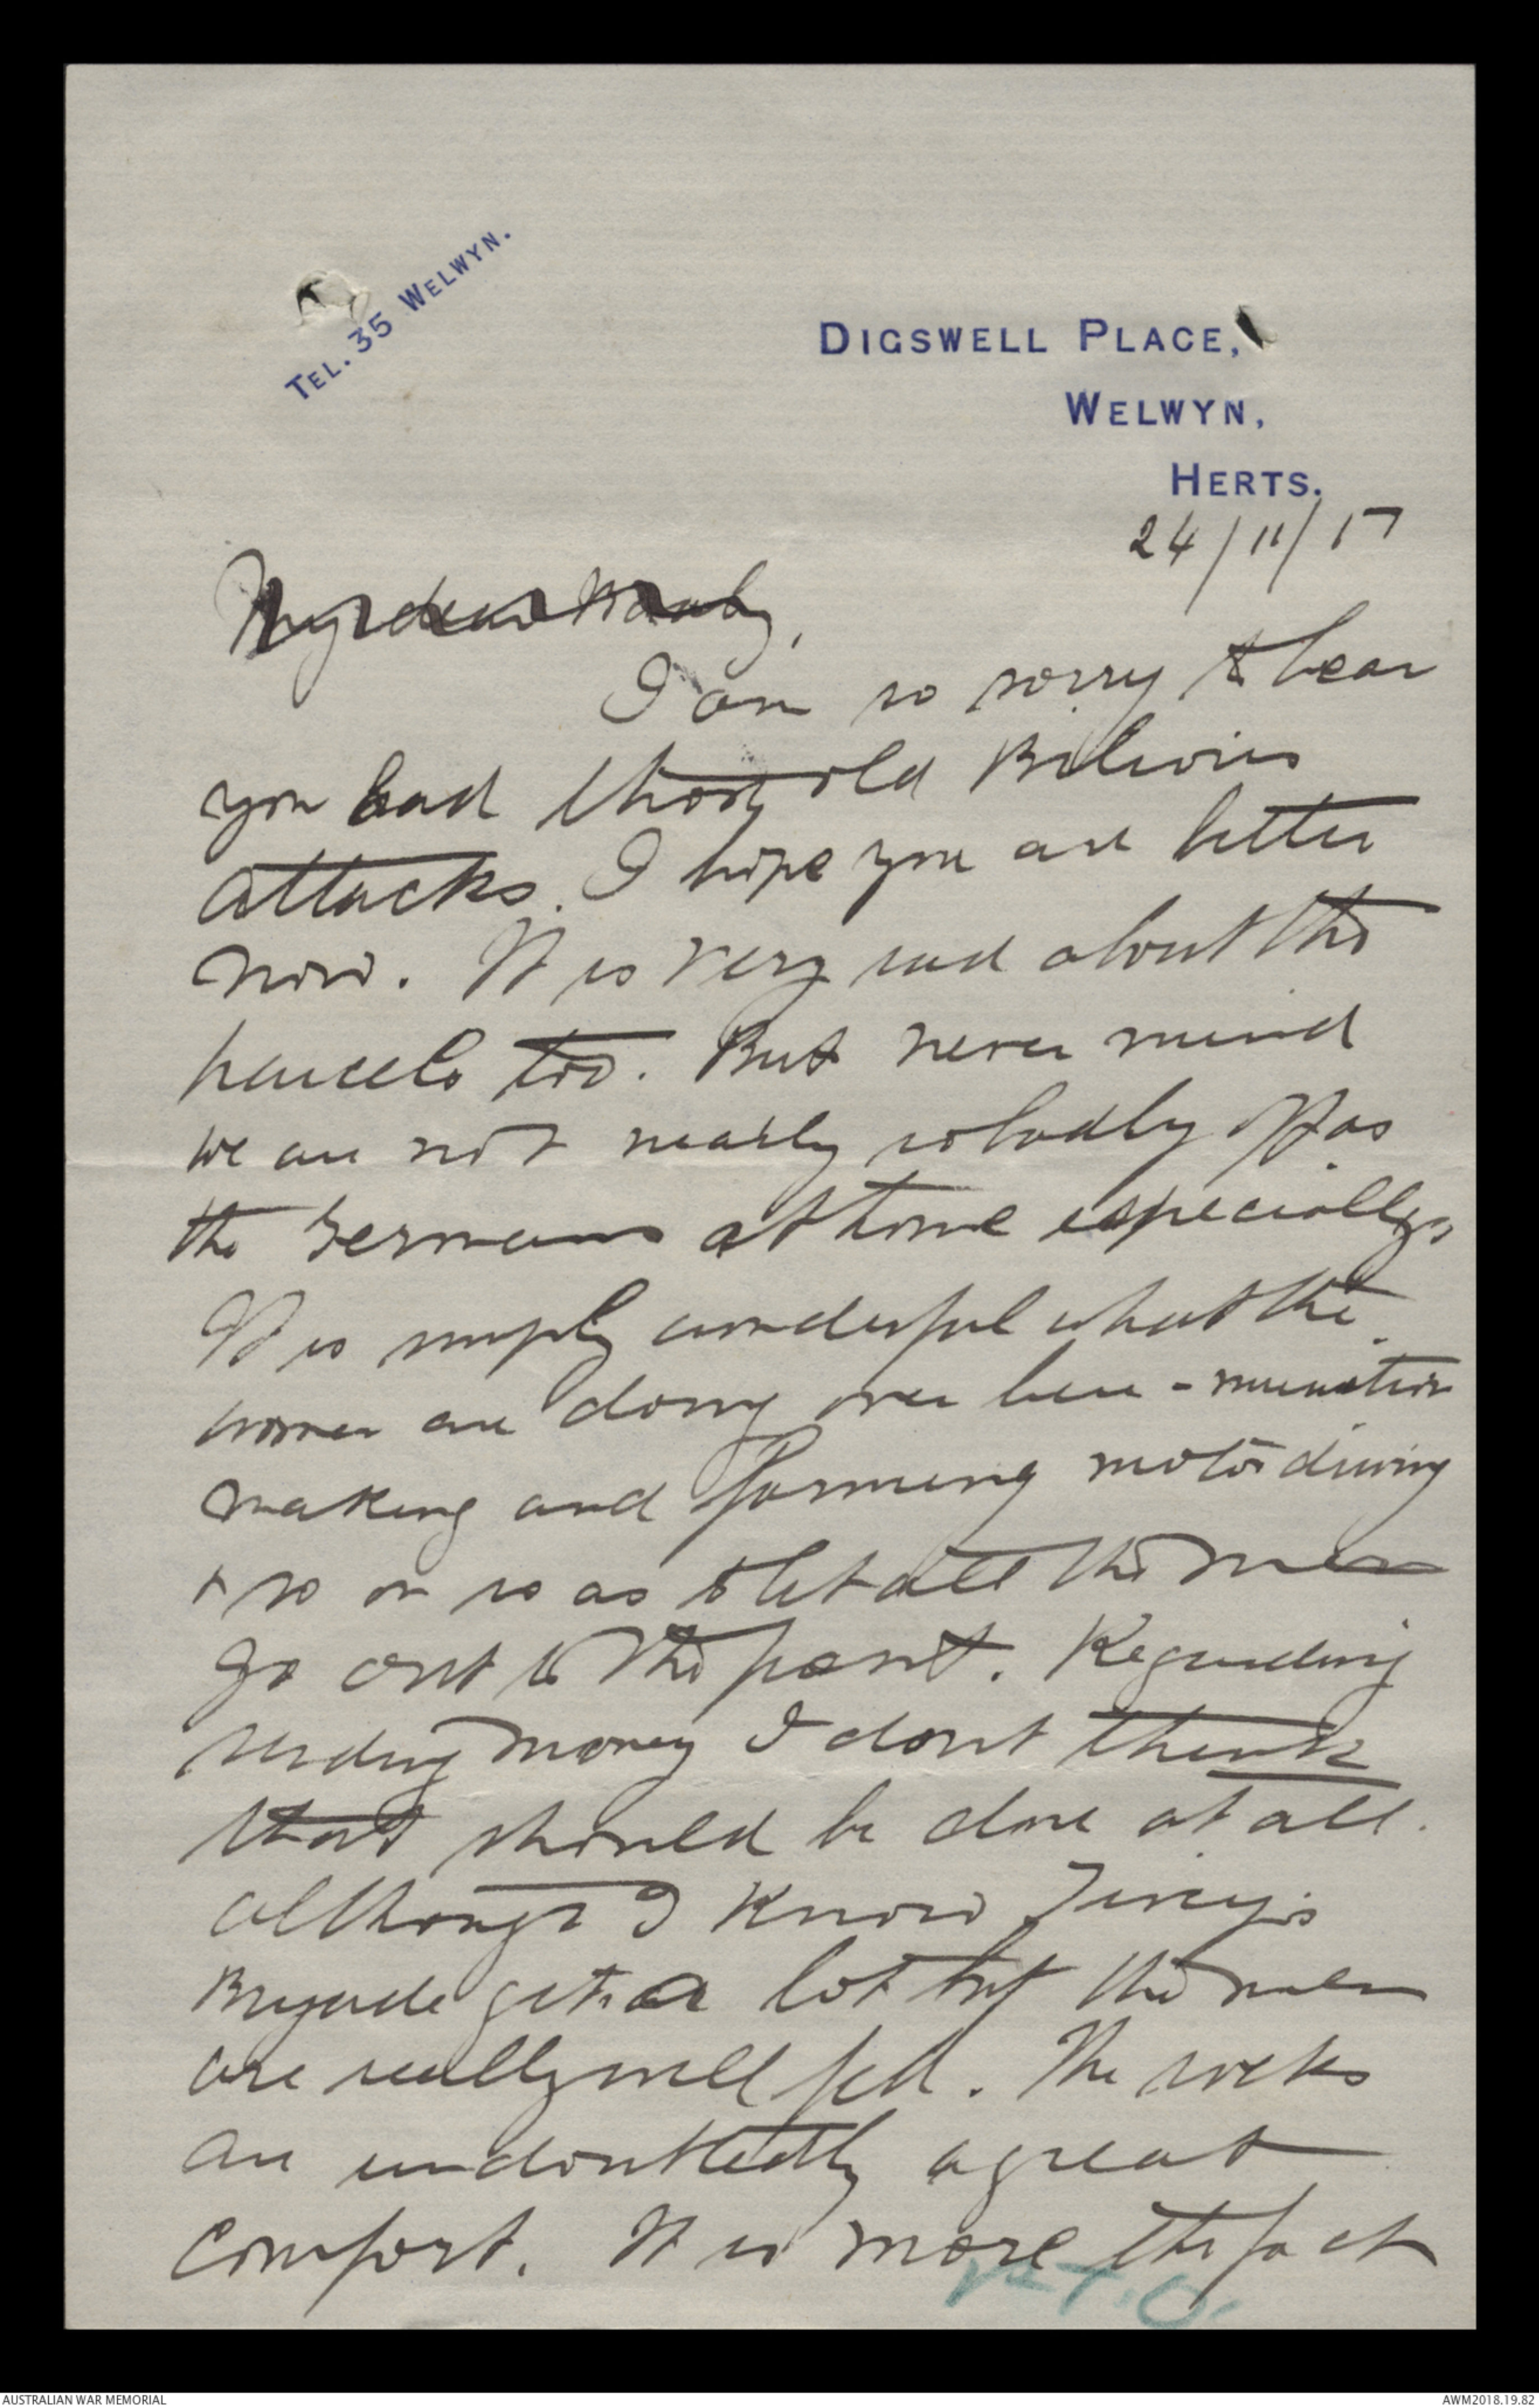 TEL. 35 WELWYN.
DIGSWELL PLACE,
WELWYN,
HERTS.
24/11/17
My dear
I am so sorry to hear
you had those old Bilious
attacks. I hope you are better
now. It is very sad about the
parcels too. But never mind
we are not nearly so badly off as
the Germans at home especially.
It is simply wonderful what the
women are doing over here - munition
making and farming motor driving
+ so on so as to let all the men
go out to the front. Regarding
sending money I dont think
that should be done at all.
although I know
Brigade gets a lot but the men
are really well fed. The socks
are undoubtedly a great
comfort. It is more the fact
P.T.O.
AUSTRALIAN WAR MEMORIAL
AWM2018.19.82